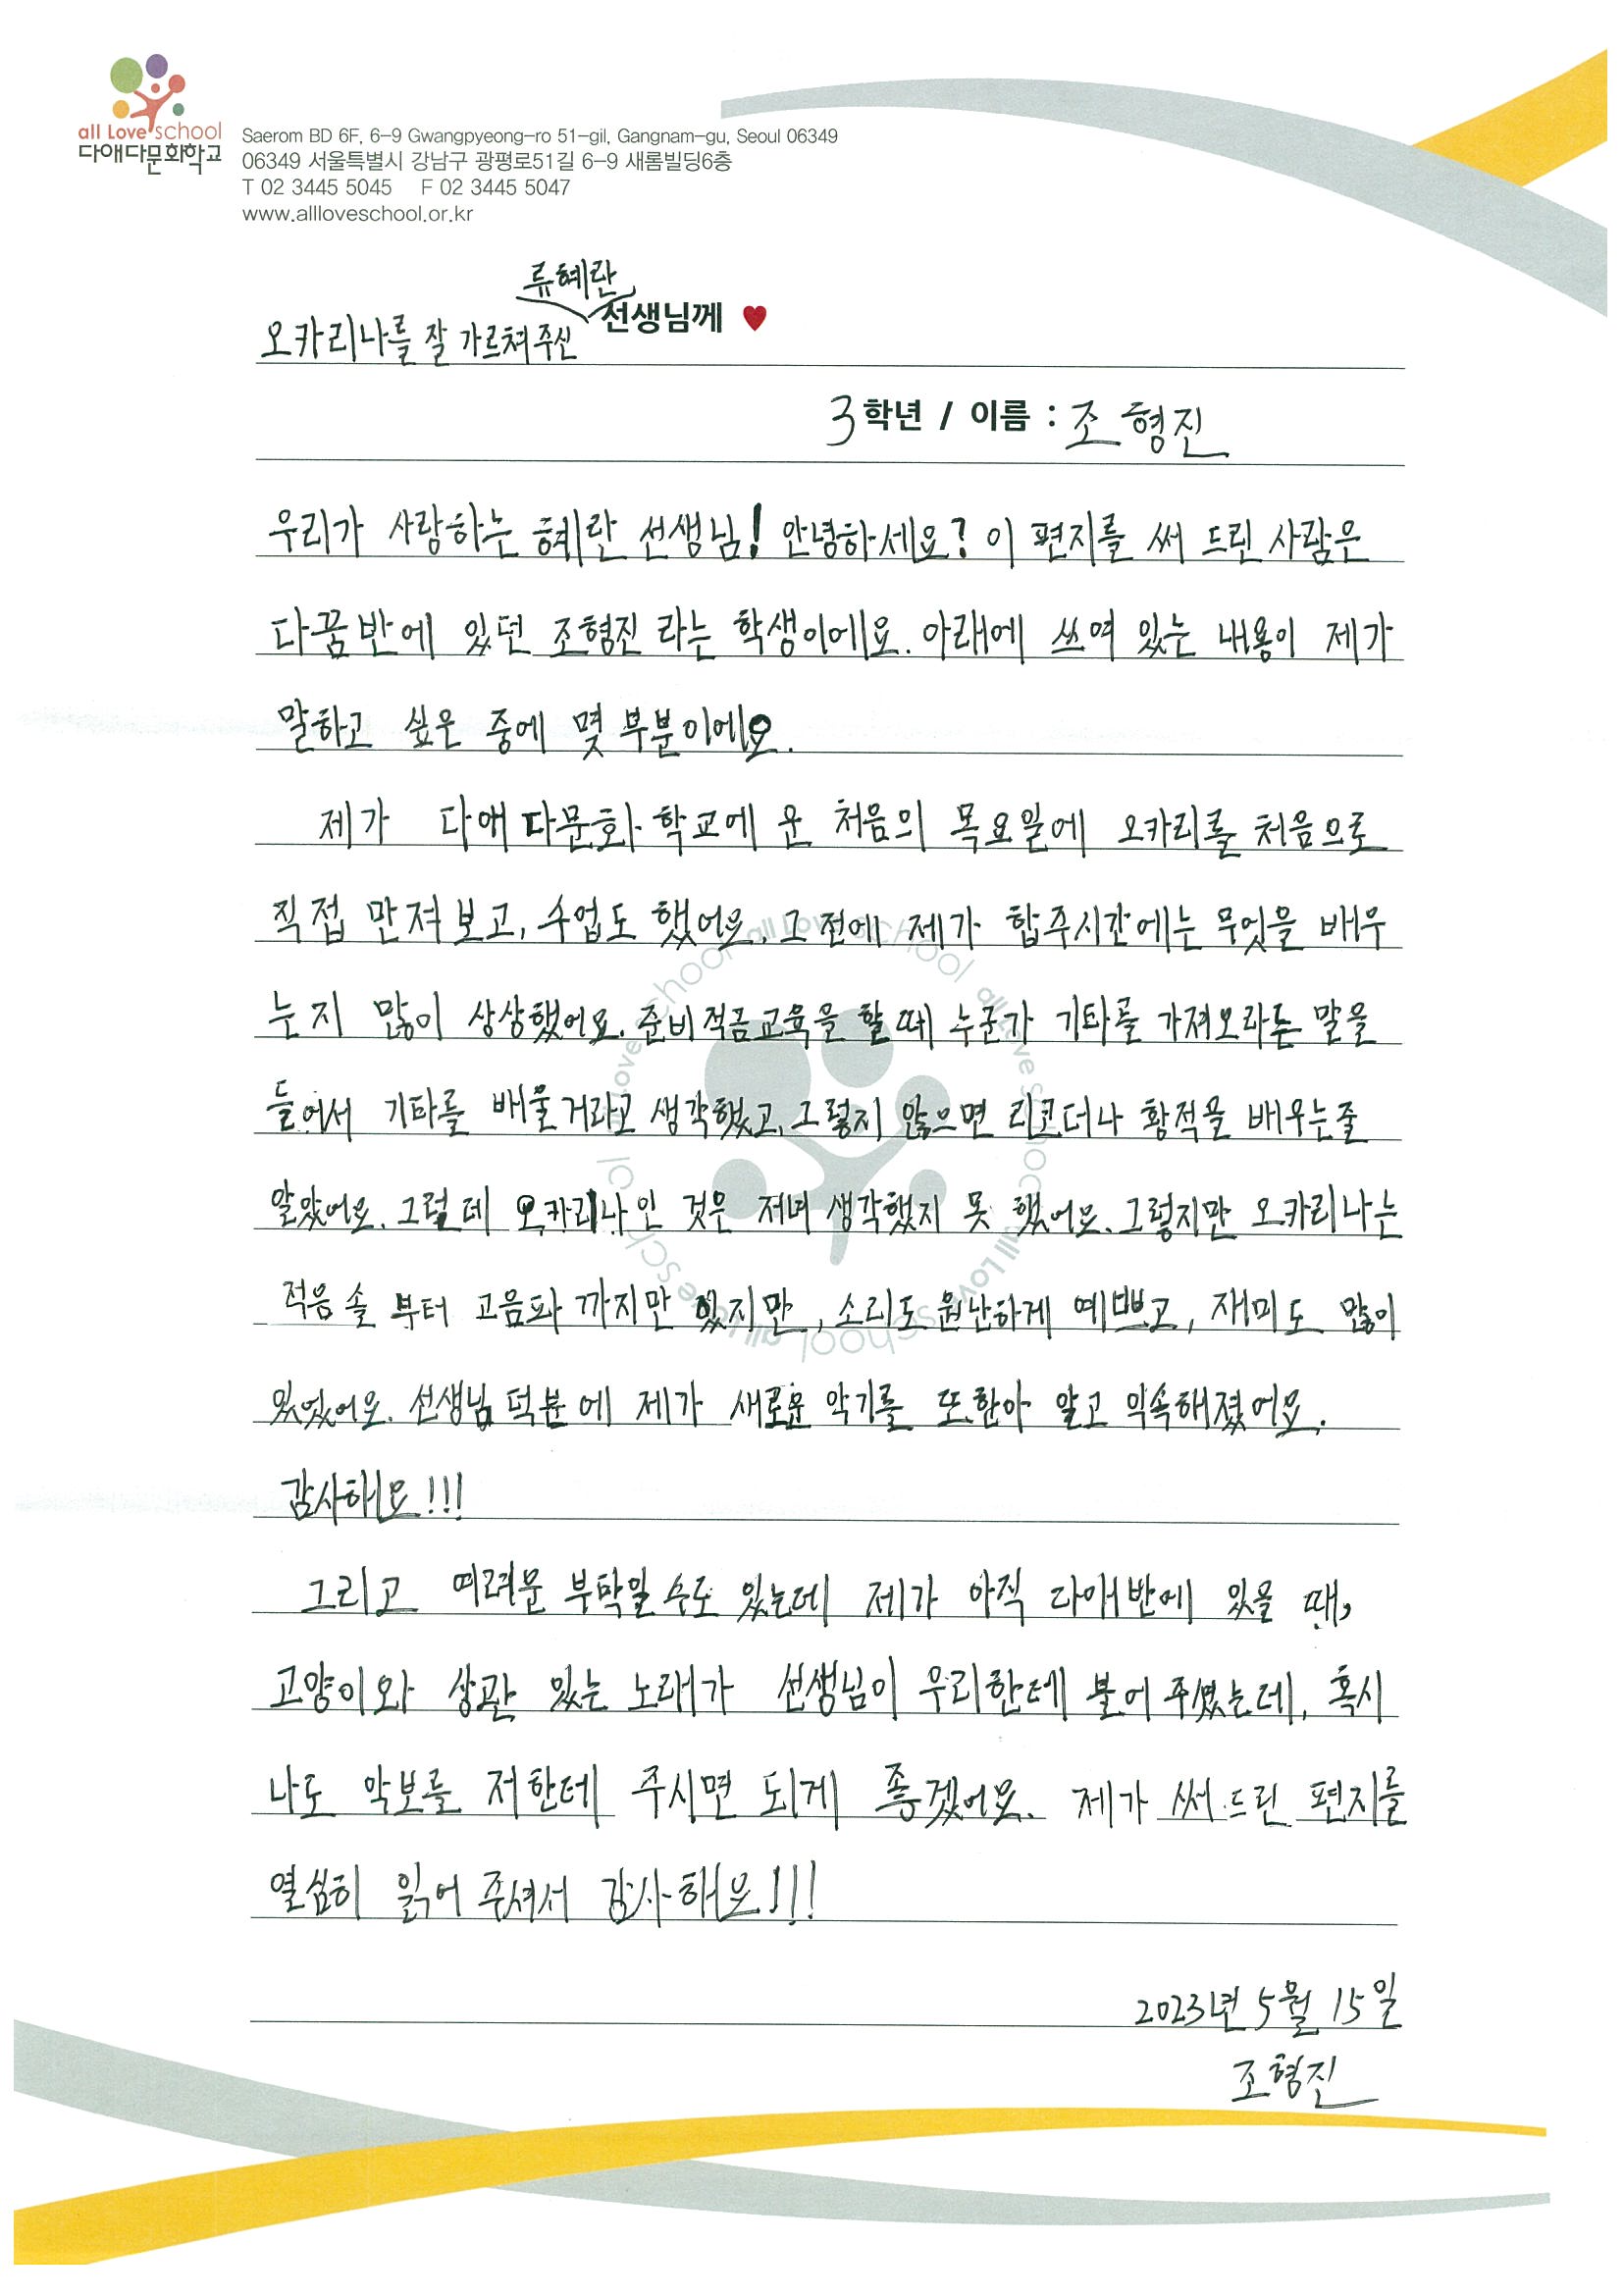 all Love school
다애다문화학교
Saerom BD 6F, 6-9 Gwangpyeong-ro 51-gil, Gangnam-gu, Seoul 06349
06349 서울특별시 강남구 광평로51길 6-9 새롬빌딩6층
T 02 3445 5045 F 02 3445 5047
www.allloveschool.or.kr
오카리나를 잘 가르쳐주신 류혜란 선생님께 ♥
3학년 / 이름 : 조형진
우리가 사랑하는 혜란 선생님! 안녕하세요? 이 편지를 써 드린 사람은
다꿈반에 있던 조형진 라는 학생이에요. 아래에 쓰여 있는 내용이 제가
말하고 싶은 중에 몇 부분이에요.
제가 다애다문화 학교에 온 처음의 목요일에 오카리를 처음으로
직접 만져보고, 수업도 했어요. 그 전에 제가 합주시간에는 무엇을 배우
는지 많이 상상했어요. 준비적금교육을 할 때 누군가 기타를 가져오라는 말을
들어서 기타를 배울거라고 생각했고, 그렇지 않으면 리코더나 황적을 배우는줄
알았어요. 그럴데 오카리나인 것은 저녀 생각했지 못 했어요. 그렇지만 오카리나는
적음 솔 부터 고음파 까지만 있지만, 소리도 원난하게 예쁘고, 재미도 많이
있었어요. 선생님 덕분에 제가 새로운 악기를 또한아 알고 익속해졌어요.
감사해요!!!
그리고 여려운 부탁일 수도 있는데 제가 아직 다애반에 있을 때,
고양이와 상관 있는 노래가 선생님이 우리한테 불어 주셨는데, 혹시
나도 악보를 저한테 주시면 되게 좋겠어요. 제가 써 드린 편지를
열심히 읽어 주셔서 감사해요!!!
2023년 5월 15일
조형진
all Love school all Love school all Love school all Love school